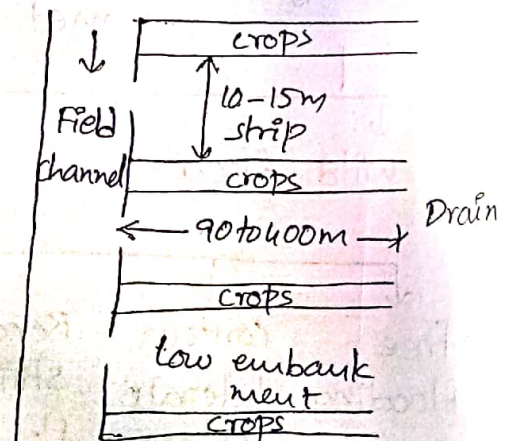 crops
10-15m
strip
Field
channel
crops
90to400m
Drain
crops
low embank
ment
crops